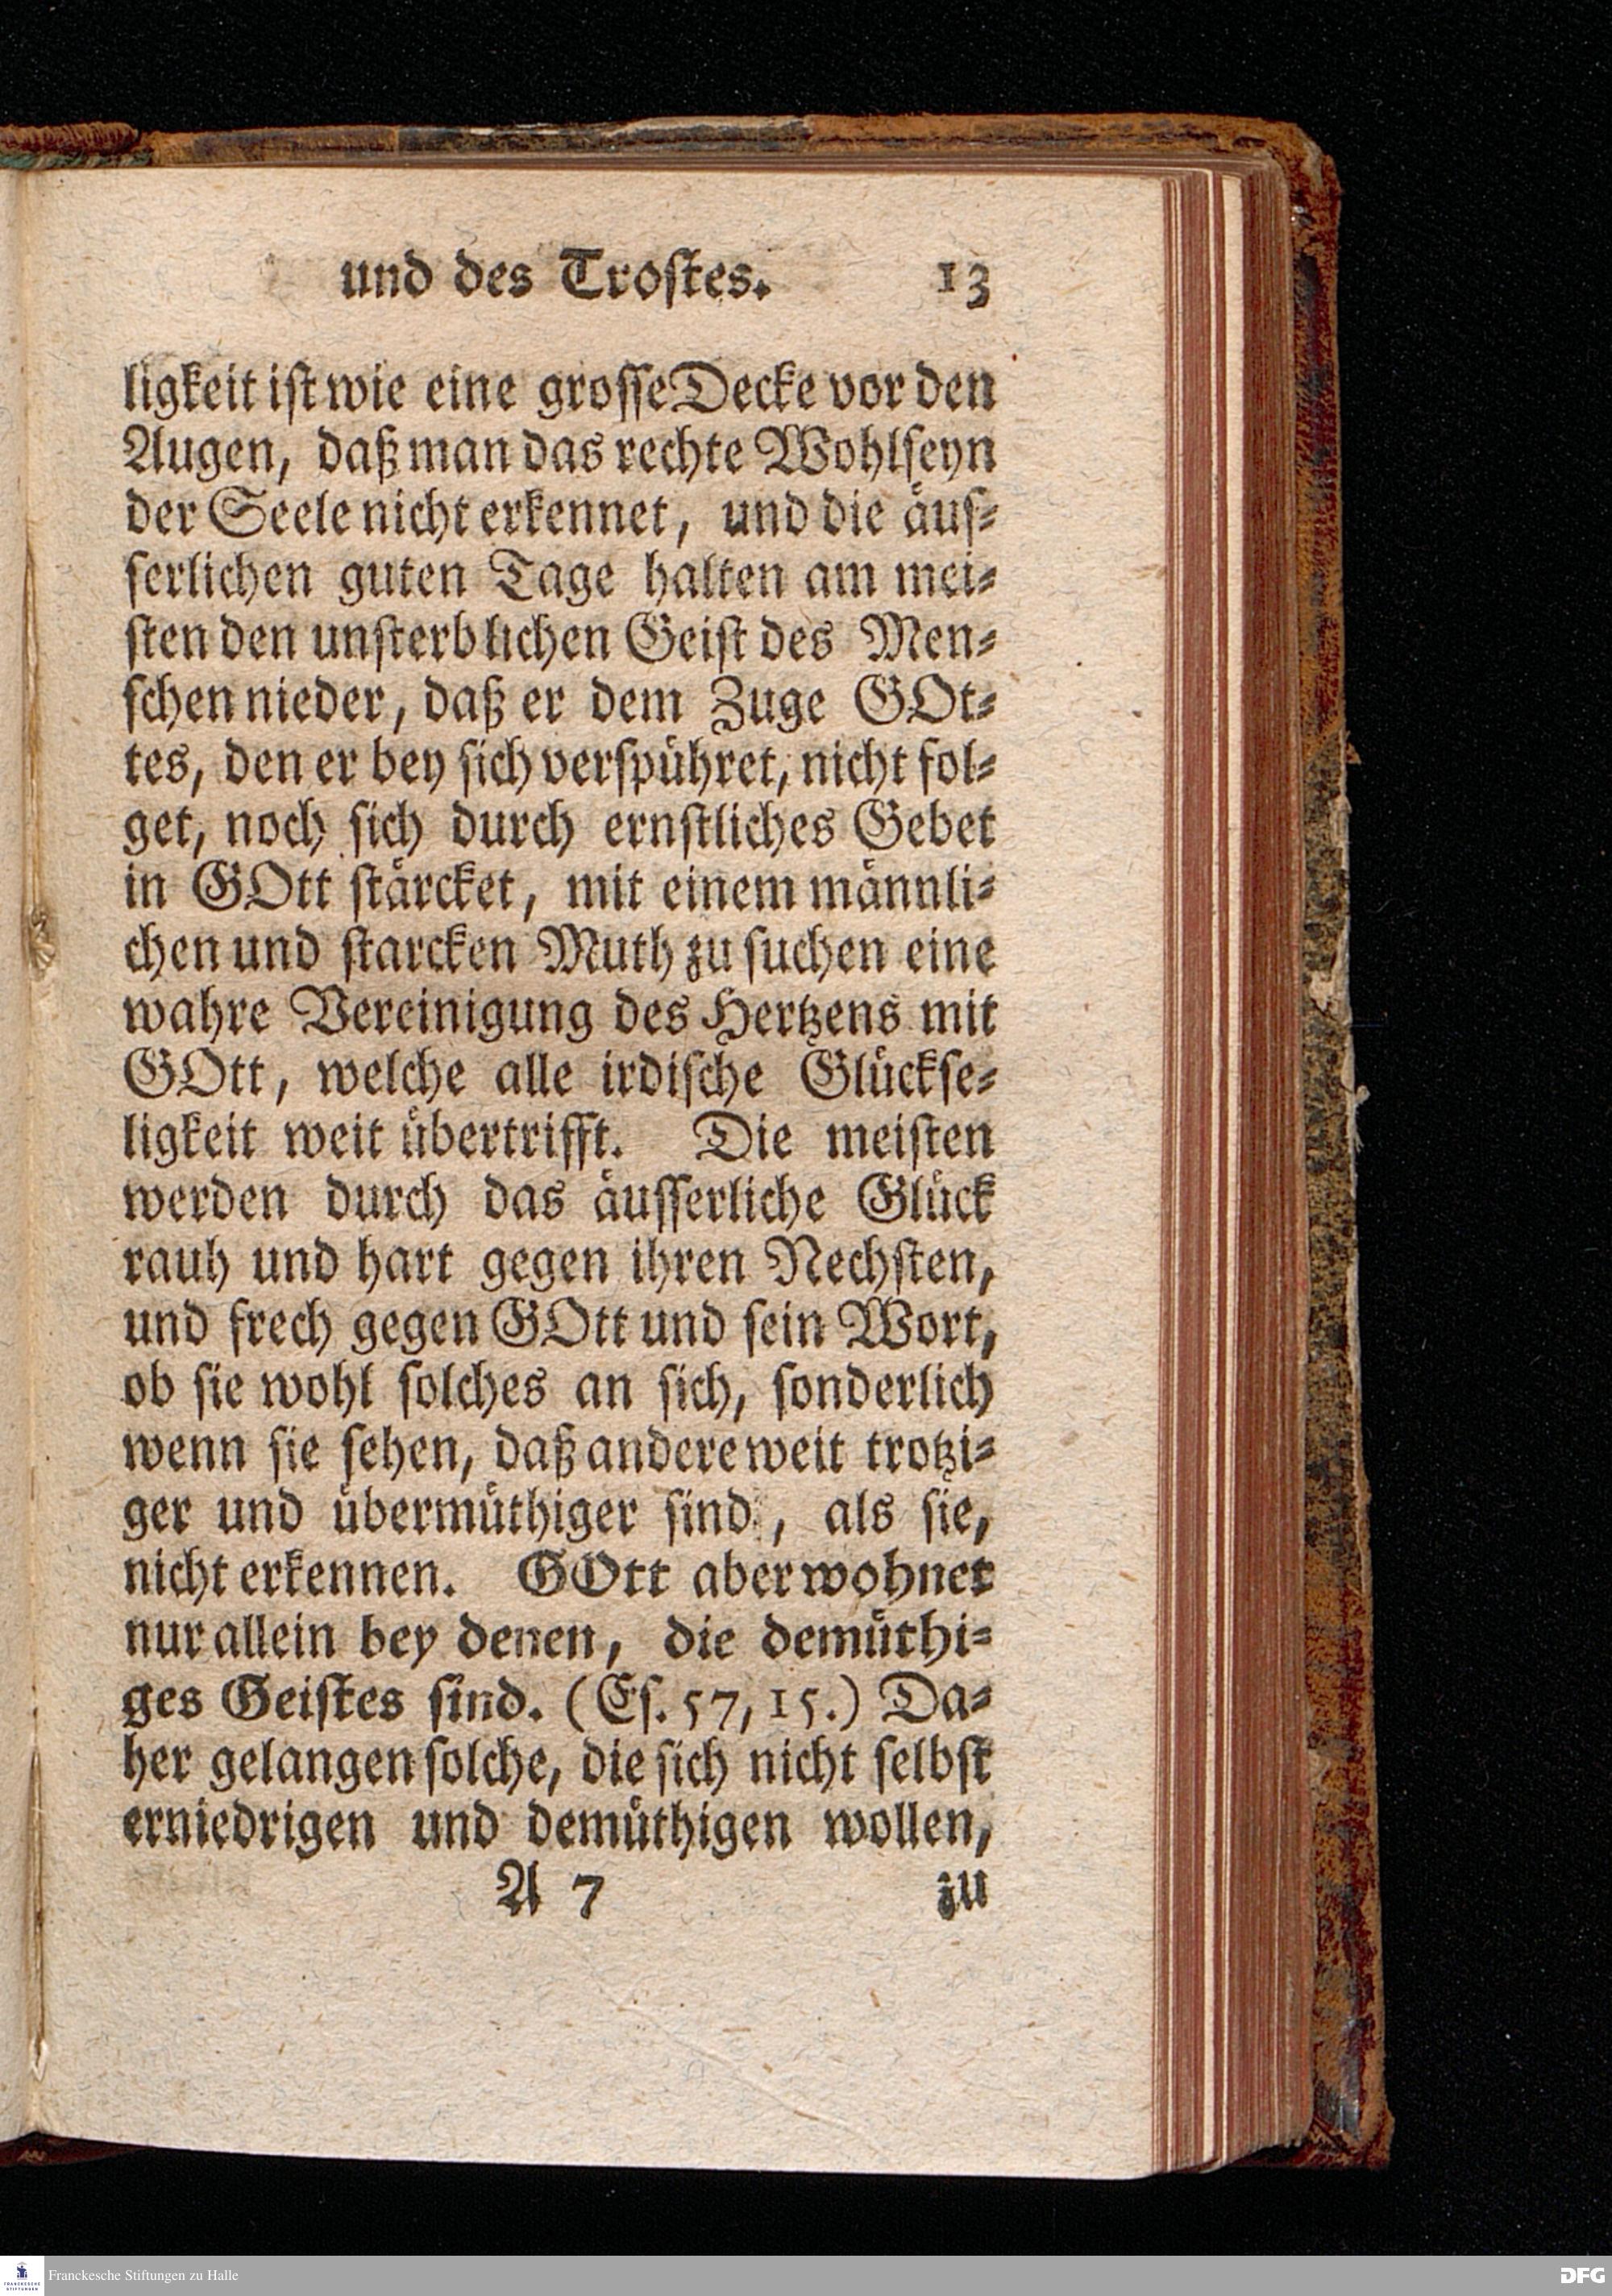 und des Troſtes. 13
ligkeit iſt wie eine groſſe Decke vor den
Augen, daß man das rechte Wohlſeyn
der Seele nicht erkennet, und die aͤuſ⸗
ſerlichen guten Tage halten am mei⸗
ſten den unſterblichen Geiſt des Men⸗
ſchen nieder, daß er dem Zuge GOt⸗
tes, den er bey ſich verſpuͤhret, nicht fol⸗
get, noch ſich durch ernſtliches Gebet
in GOtt ſtaͤrcket, mit einem maͤnnli⸗
chen und ſtarcken Muth zu ſuchen eine
wahre Vereinigung des Hertzens mit
GOtt, welche alle irdiſche Gluͤckſe⸗
ligkeit weit uͤbertrifft. Die meiſten
werden durch das aͤuſſerliche Gluͤck
rauh und hart gegen ihren Nechſten,
und frech gegen GOtt und ſein Wort,
ob ſie wohl ſolches an ſich, ſonderlich
wenn ſie ſehen, daß andere weit trotzi⸗
ger und uͤbermuͤthiger ſind, als ſie,
nicht erkennen. GOtt aber wohnet
nur allein bey denen, die demuͤthi⸗
ges Geiſtes ſind. (Eſ. 57, 15.) Da⸗
her gelangen ſolche, die ſich nicht ſelbſt
erniedrigen und demuͤthigen wollen,
A 7 zu
Franckesche Stiftungen zu Halle
DFG